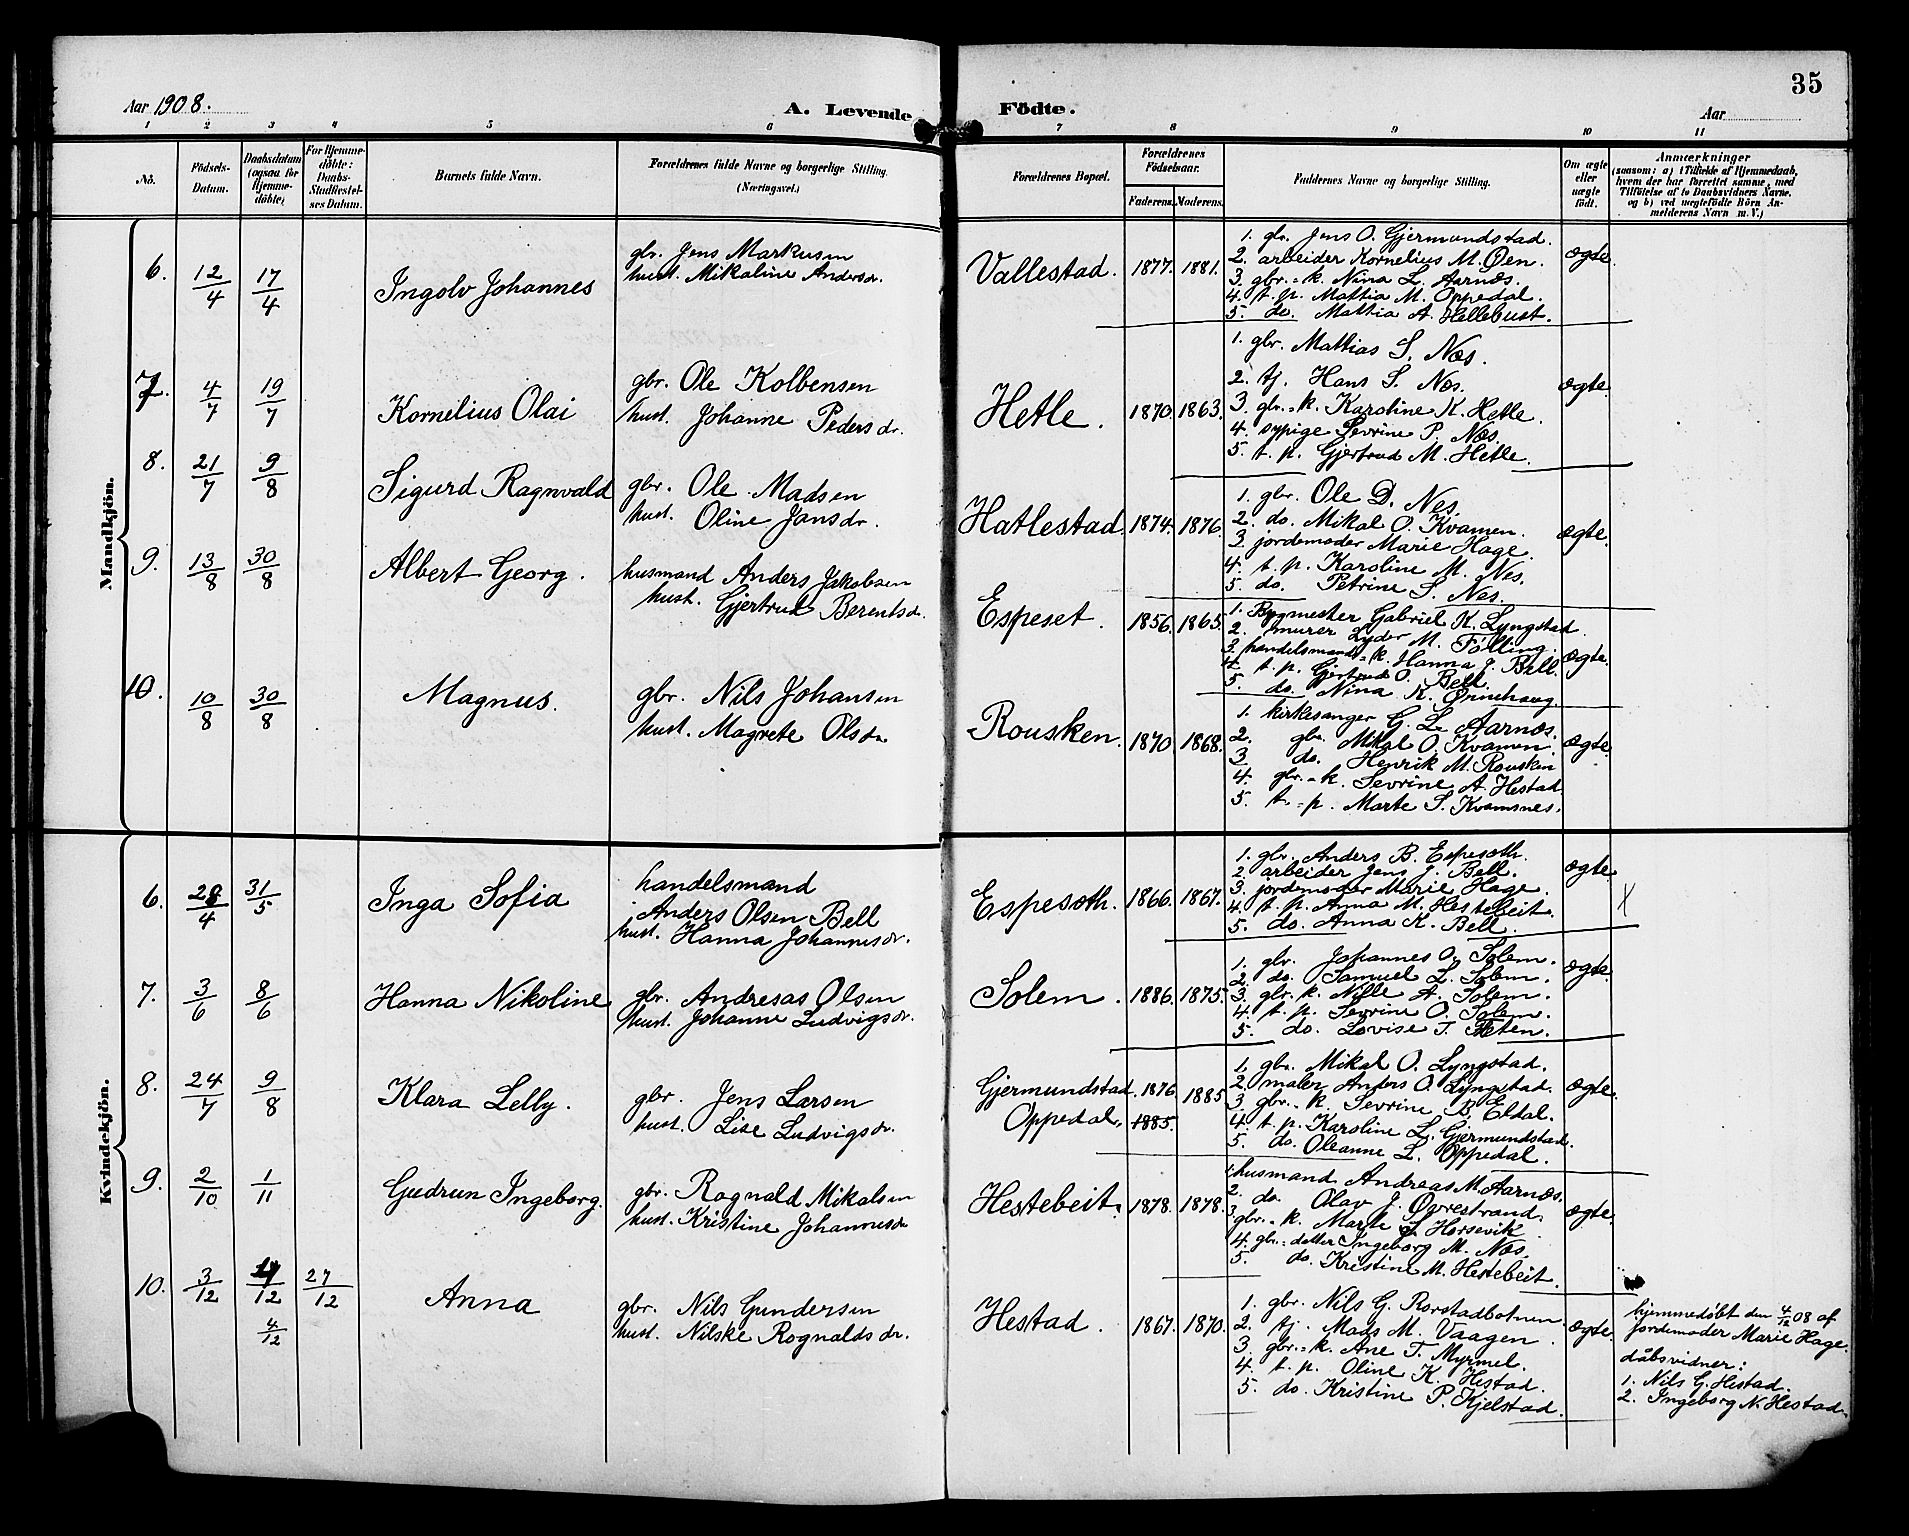 35
Aar 1908.
A. Levende Födte.
Aar
1 2 3 4 5 6 7 8 9 10 11
No.
Födsels-
Datum.
Daabsdatum
(ogsaa for
Hjemme-
döbte)
For Hjemme-
döbte:
Daabs-
Stadfæstel-
ses Datum.
Barnets fulde Navn.
Forældrenes fulde Navne og borgerlige Stilling.
(Næringsvei.)
Forældrenes Bopæl.
Forældrenes
Födselsaar.
Faderens. Moderens.
Faddernes Navne og borgerlige Stilling.
Om ægte
eller
uægte
födt.
Anmærkninger
(saasom: a) i Tilfælde af Hjemmedaab,
hvem der har forrettet samme, med
Tilföielse af to Daabsvidners Navne.
og b) ved uægtefödte Börn An-
melderens Navn m. V.)
Mandkjön.
6. 12/4 17/4 Ingolv Johannes
gbr. Jens Markusen
hust. Mikaline Andersdr.
Vallestad. 1877. 1881.
1. gbr. Jens O. Gjermundstad.
2. arbeider Kornelius M. Øen.
3. gbr.-k. Nina L. Aarnæs.
4. t. p. Mattia M. Oppedal.
5. do. Mattia A. Hellebust.
ægte.
7. 4/7 19/7 Kornelius Olai
gbr. Ole Kolbensen
hust. Johanne Pedersdr.
Hetle. 1870. 1863.
1. gbr. Mattias S. Næs.
2. tj. Hans S. Næs.
3. gbr.-k. Karoline K. Hetle.
4. sypige Sevrine P. Næs.
5. t. p. Gjertrud M. Hetle.
ægte.
8. 21/7 9/8 Sigurd Ragnvald
gbr. Ole Madsen
hust. Oline Jansdr.
Hatlestad. 1874. 1876.
1. gbr. Ole D. Nes.
2. do. Mikal O. Kvamen.
3. jordemoder Marie Hage.
4. t. p. Karoline M. Nes.
5. do. Petrine S. Nes.
ægte.
9. 13/8 30/8 Albert Georg.
husmand Anders Jakobsen
hust. Gjertrud Berentsdr.
Espeset. 1856. 1865.
1. Bygmester Gabriel K. Lyngstad.
2. murer Lyder M. Fölling.
3. handelsmands-k. Hanna J. Bell.
4. t. p. Gjertrud O. Bell.
5. do. Nina K. Grinehaug.
ægte.
10. 10/8 30/8 Magnus.
gbr. Nils Johansen
hust. Magrete Olsdr.
Rousken. 1870 1868.
1. kirkesanger G. L. Aarnæs.
2. gbr. Mikal O. Kvamen.
3 do. Henrik M. Rousken
4. gbr.-k. Sevrine A. Hestad
5. t.-p. Marte S. Kvamsnes.
ægte.
Kvindekjön.
6. 28/4 31/5 Inga Sofia
handelsmand
Anders Olsen Bell
hust. Hanna Johannesdr.
Espesoth. 1866. 1867.
1. gbr. Anders B. Espesoth.
2. arbeider Jens J. Bell.
3. jordemoder Marie Hage.
4. t. p. Anna M. Hestebeit.
5. do. Anna K. Bell.
ægte. X
7. 3/6 8/6 Hanna Nikoline
gbr. Andreas Olsen
hust. Johanne Ludvigsdr.
Solem. 1886. 1875.
1. gbr. Johannes O. Solem.
2. do. Samuel L. Solem.
3. gbr. k. Nille A. Solem.
4. t. p. Sevrine O. Solem.
5. do. Lovise T. Teten.
ægte.
8. 24/7 9/8 Klara Lelly.
gbr. Jens Larsen
hust. Lise Ludvigsdr.
Gjermundstad. 1876 1885
Oppedal. 1885.
1. gbr. Mikal O. Lyngstad.
2. maler Anders O. Lyngstad.
3. gbr.-k. Sevrine B. Eldal.
4. t. p. Karoline L. Gjermundstad.
5. do. Oleanne L. Oppedal.
ægte.
9. 2/10 1/11 Gudrun Ingeborg.
gbr. Rognald Mikalsen
hust. Kristine Johannesdr
Hestebeit. 1878. 1878.
1. husmand Andreas M. Aarnæs.
2. do. Olav J. Øvrestrand.
3. gbr.-k. Marte S. Horsevik
4. gbr.-datter Ingeborg M. Næs.
5. do. Kristine M. Hestebeit.
ægte.
10. 3/12 4/12 27/12 Anna
gbr. Nils Gundersen
hust. Nilske Rognaldsdr.
Hestad. 1867. 1870.
1. gbr. Nils G. Rorstadbotnen
2. tj. Mads M. Vaagen.
3. gbr.-k. Ane T. Myrmel.
4. t. p. Oline K. Hestad.
5. do. Kristine P. Kjelstad.
ægte.
hjemmedøbt den 4/12 08 af
jordemoder Marie Hage.
dåbsvidner:
1. Nils G. Hestad.
2. Ingeborg N. Hestad.